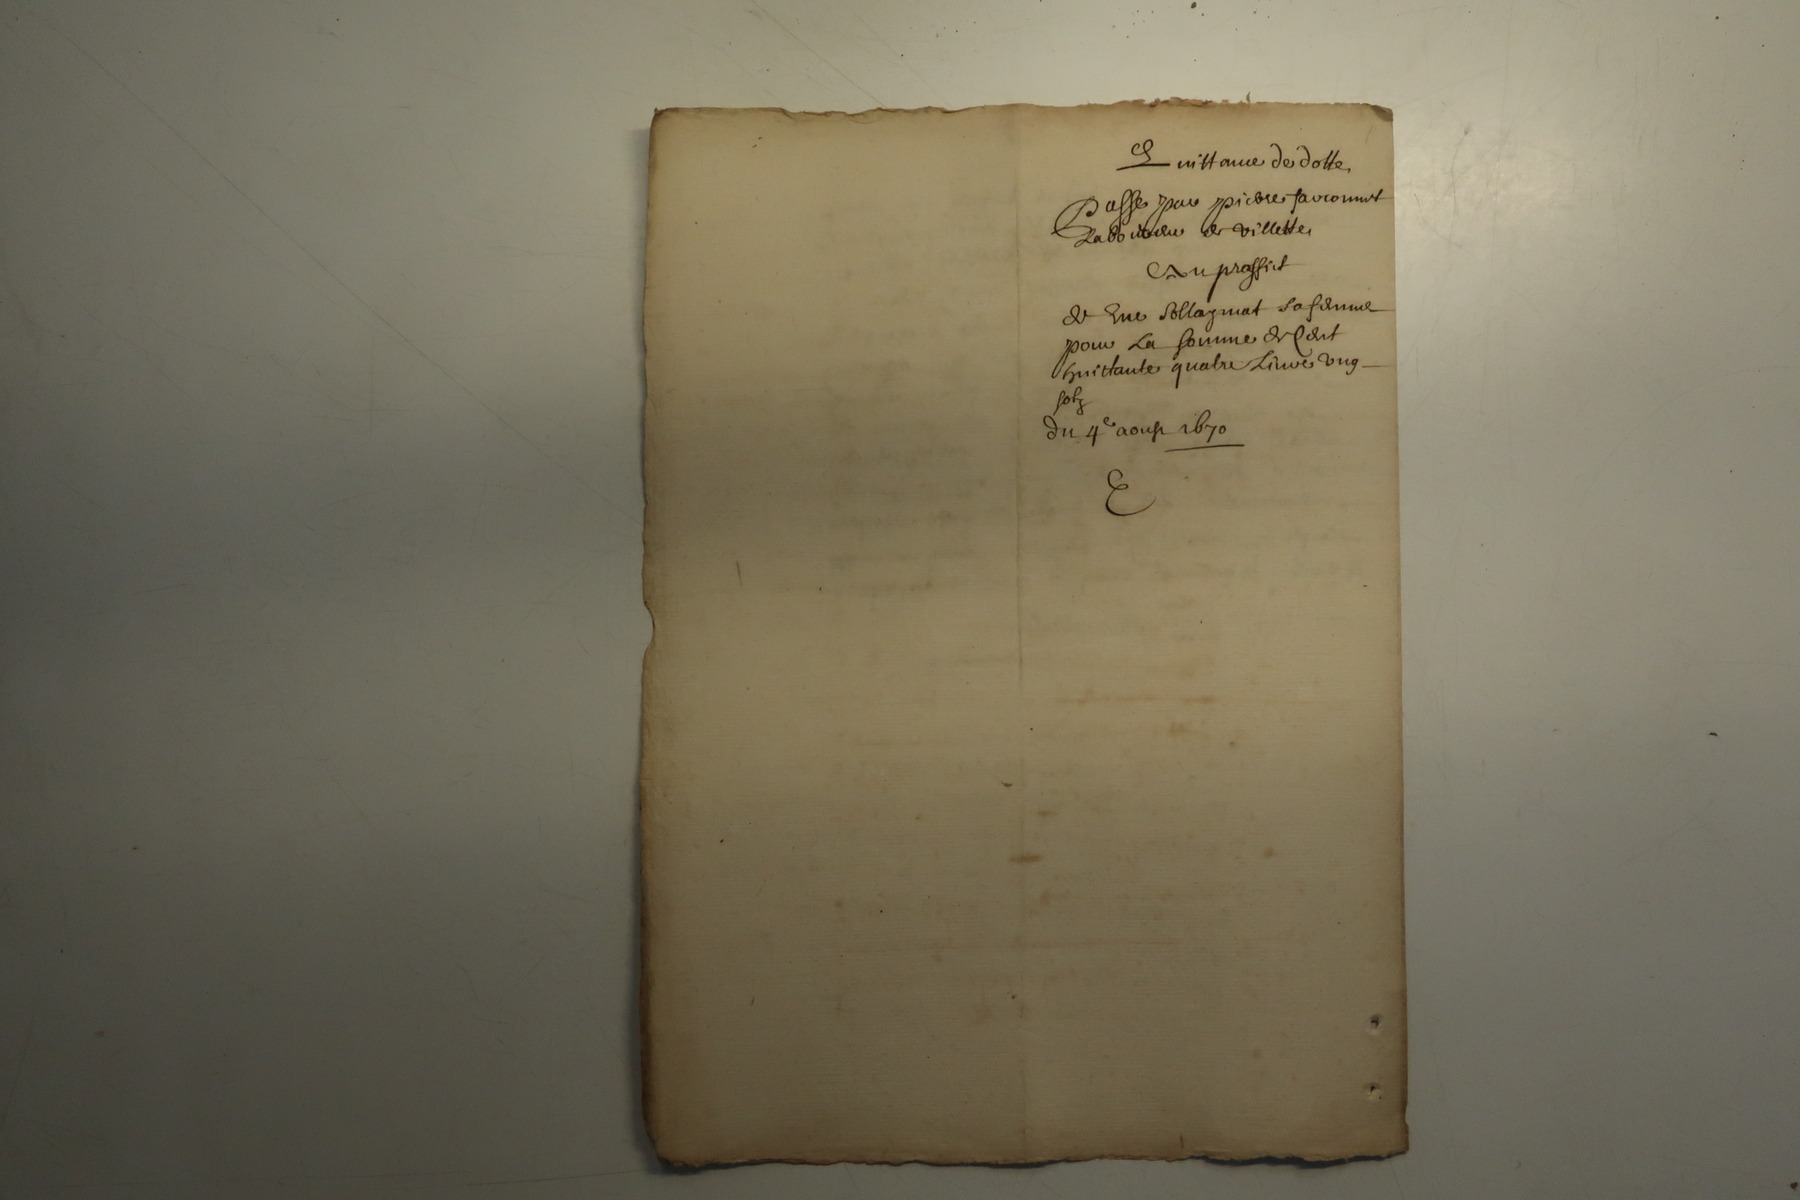 Quittance de dotte
Passe par pierre favconnet
Laboureur de villette
Au proffict
de Eue Sollagmat sa femme
pour La somme de Cent
huictante quatre Liures vng
solz
du 4e aoust 1670